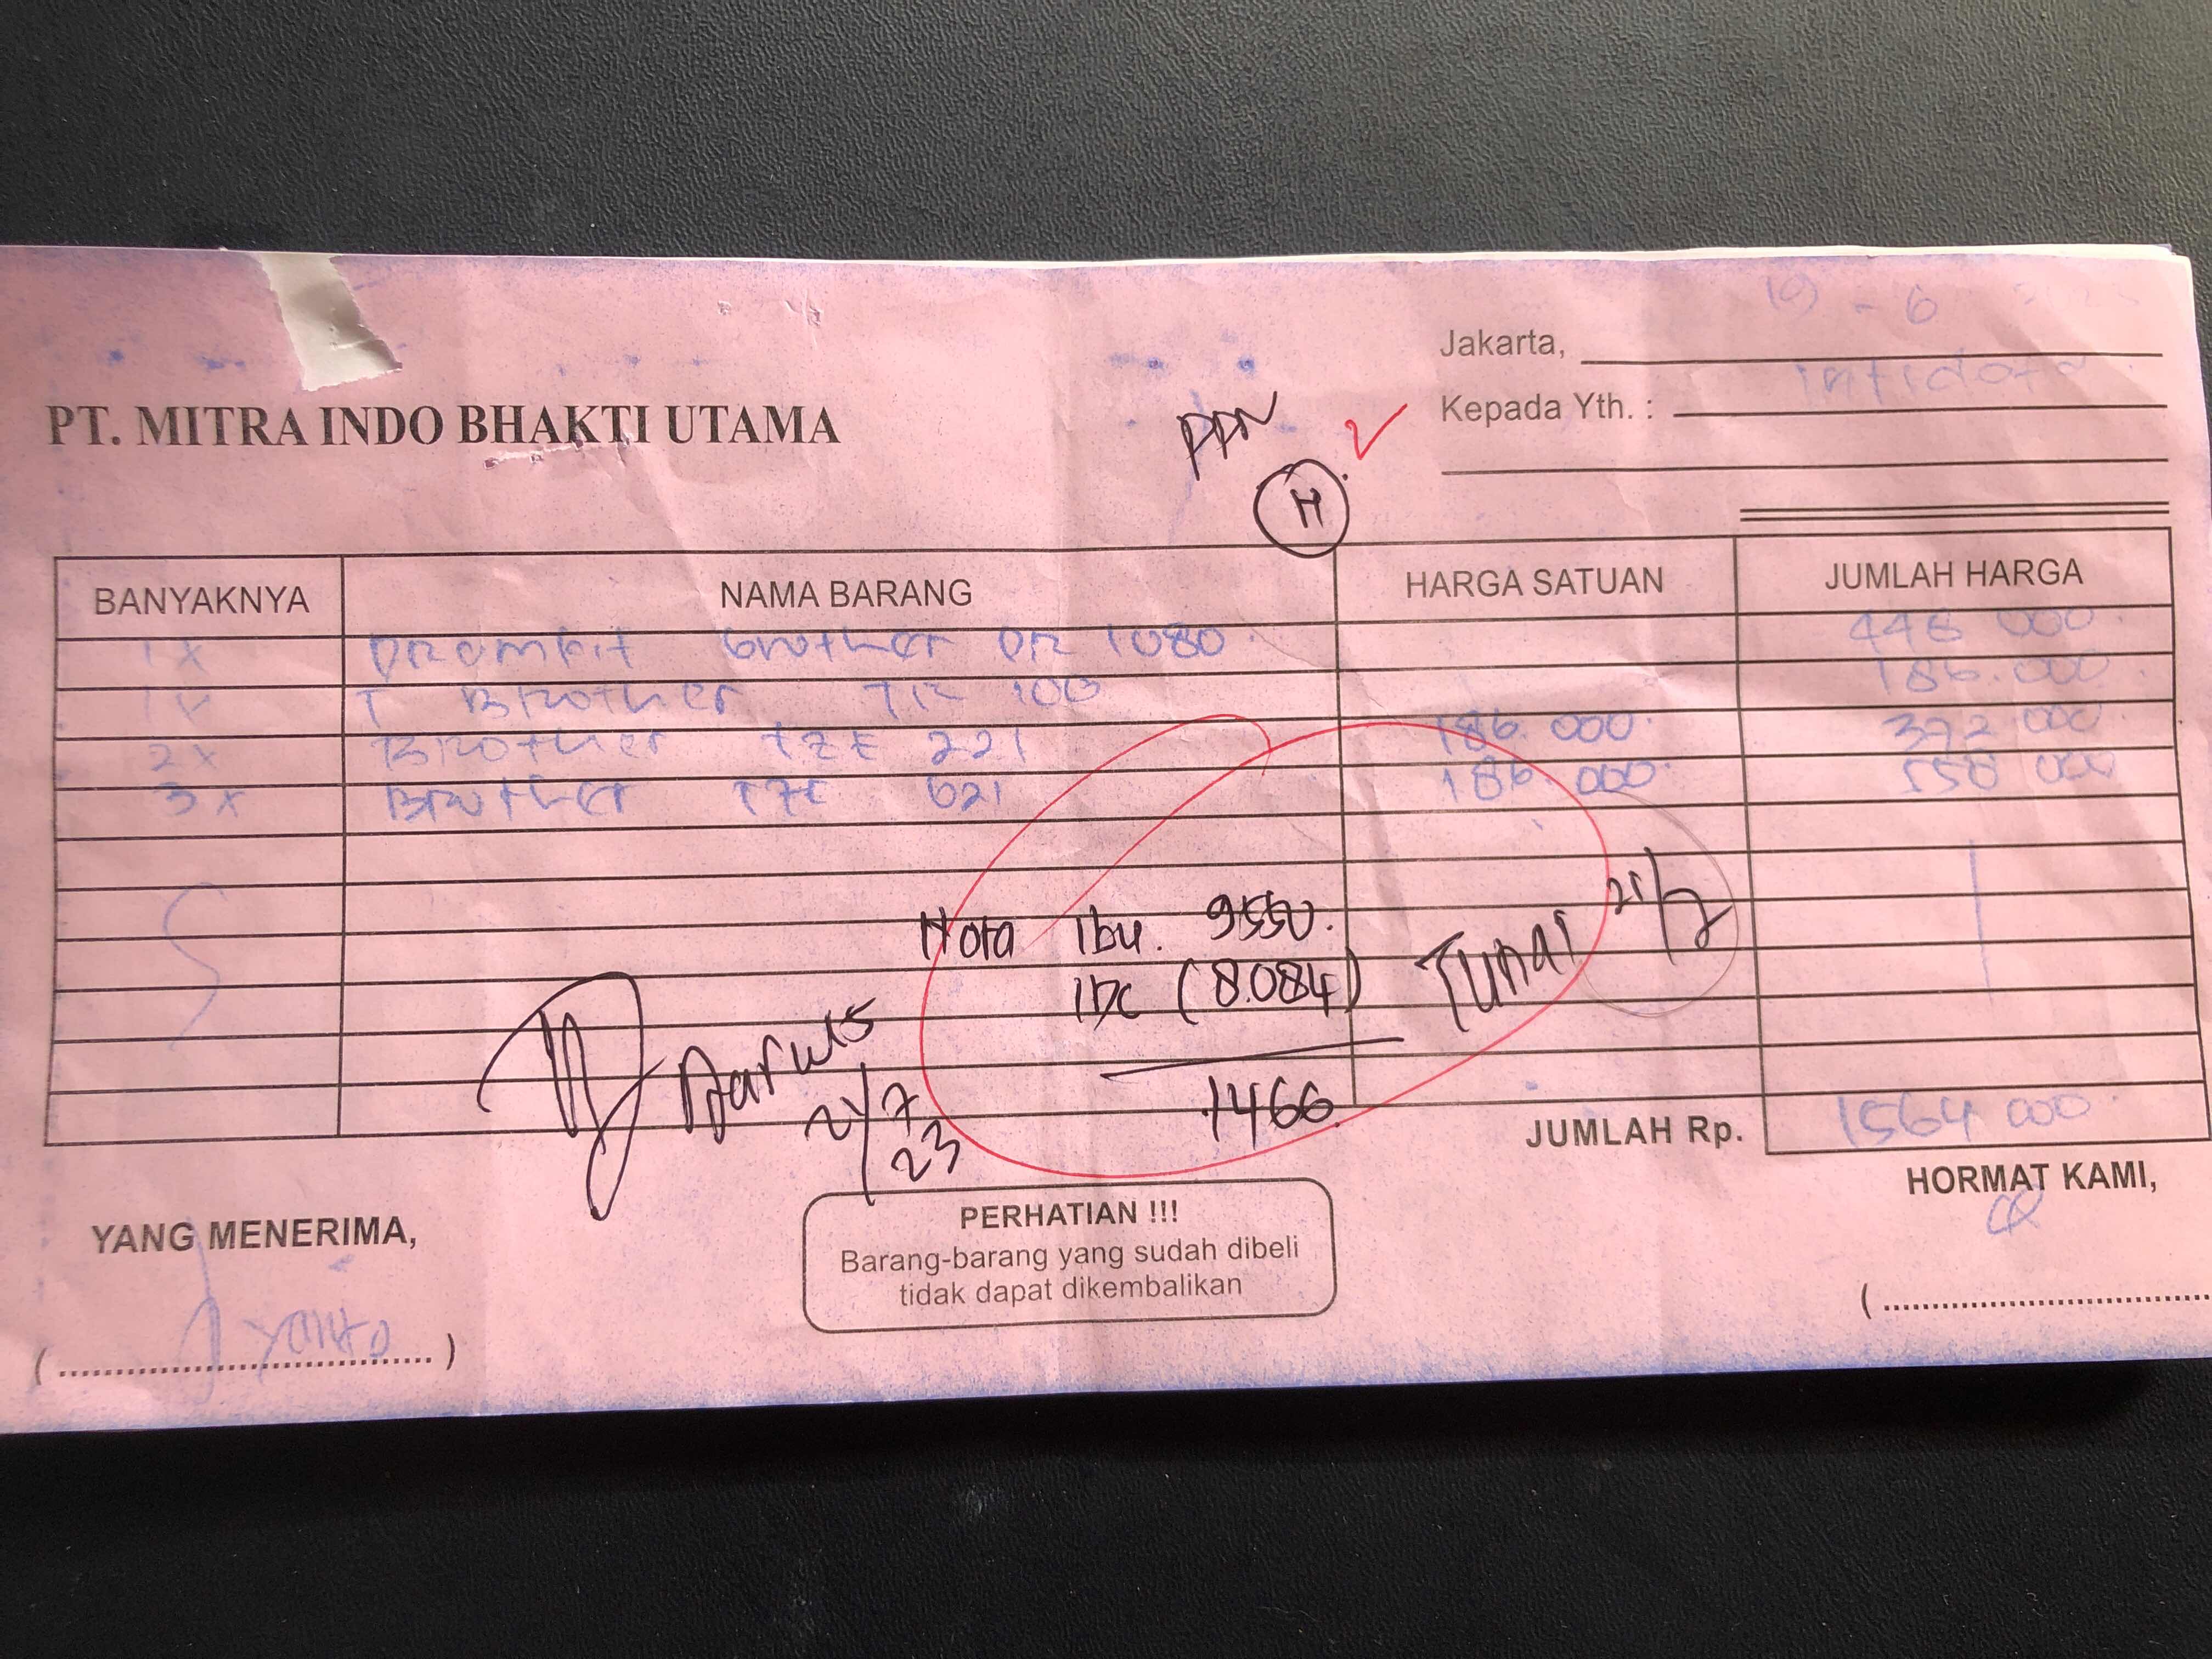 19 - 6
Jakarta,
Kepada Yth. : intidata
PT. MITRA INDO BHAKTI UTAMA
PPN
H
BANYAKNYA NAMA BARANG HARGA SATUAN JUMLAH HARGA
1x Drumkit brother DR 1080 448 000
1x T Brother TR 100 186.000
2x Brother TZE 221 186.000 372 000
3x Brother TZE 621 186.000 558 000
Nota Ibu. 9550.
IDC (8.084) Tunai
1466.
21/7
23
JUMLAH Rp. 1564 000
YANG MENERIMA, HORMAT KAMI,
PERHATIAN !!!
Barang-barang yang sudah dibeli
tidak dapat dikembalikan
(.....................................) (.....................................